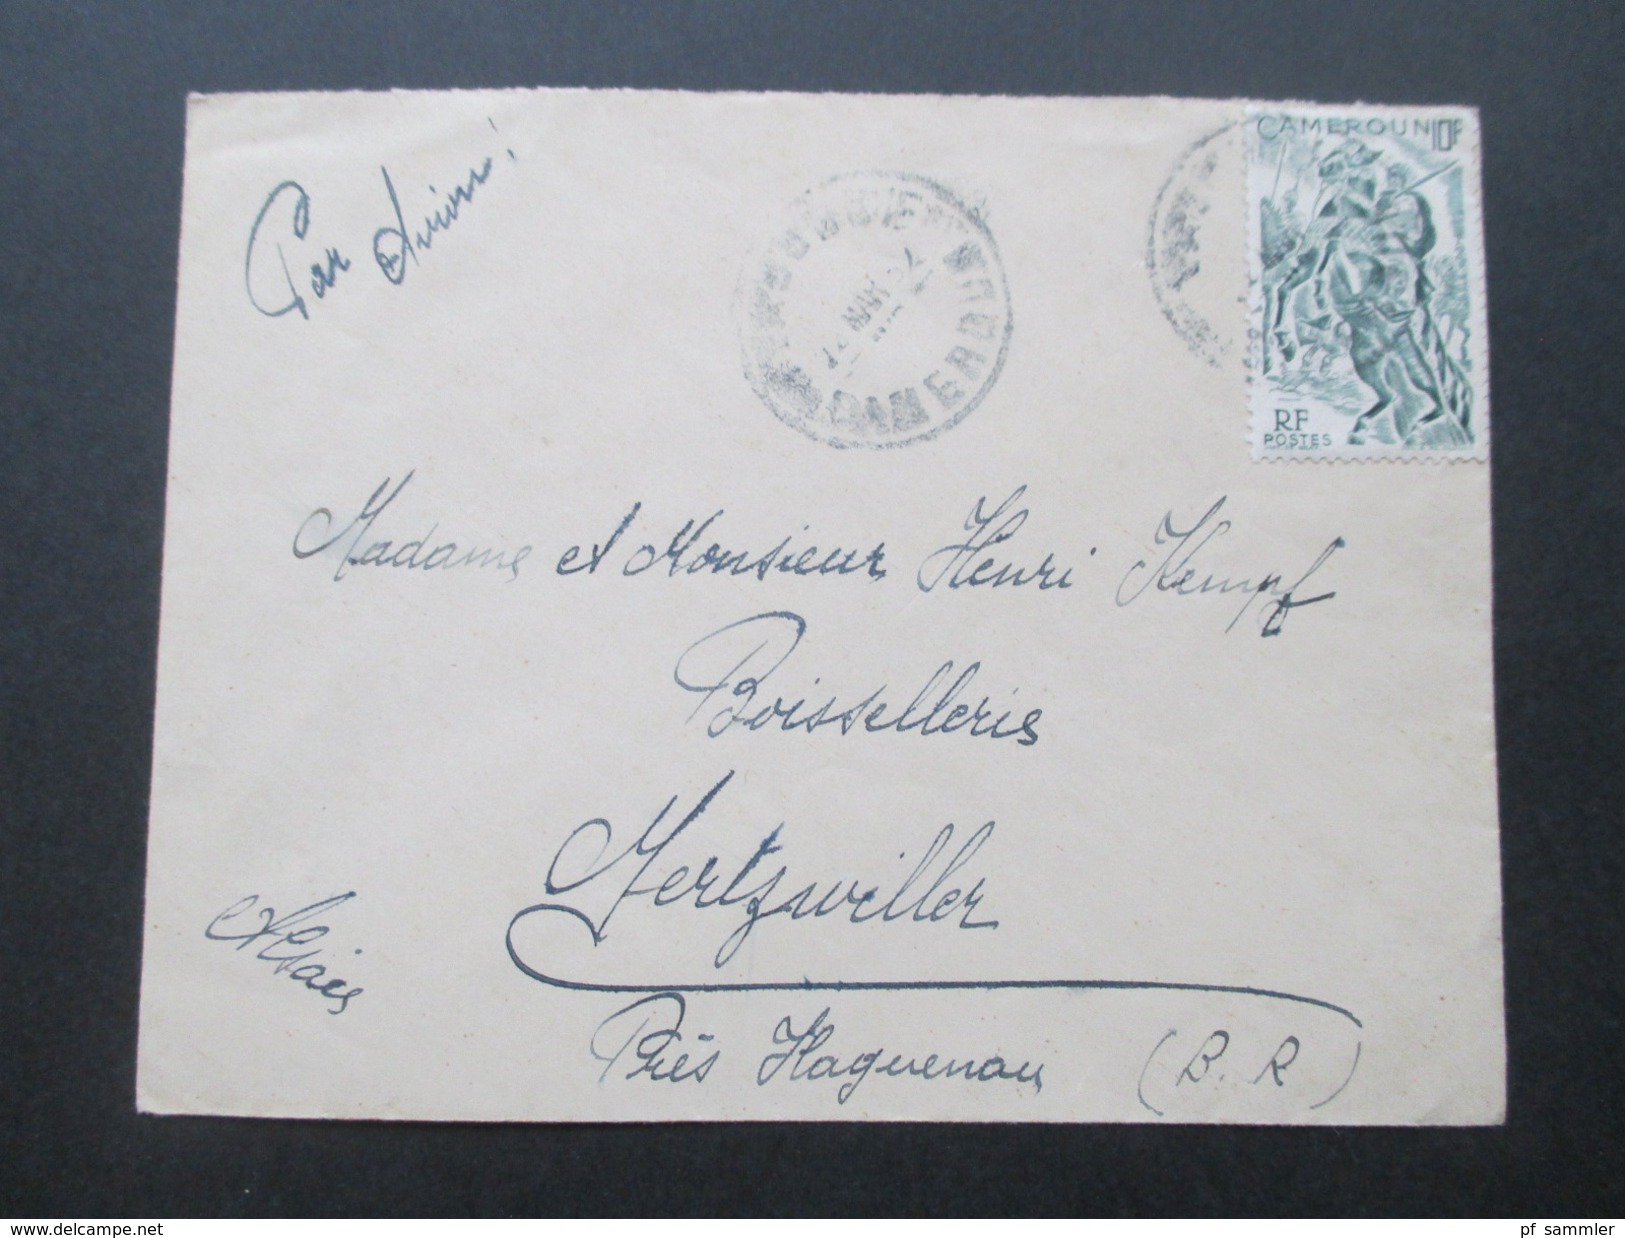 Par Avion!
CAMEROUN 10F
RF
POSTES
MAR 52
CAMEROUN
Madame et Monsieur Henri Kempf
Boissellerie
Mertzwiller
Alsace
Près Haguenau (B. R)
www.delcampe.net
pf_sammler